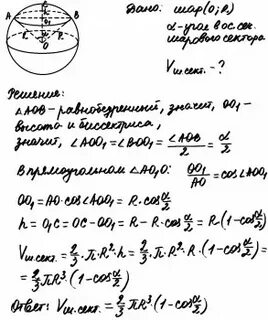 C
A
B
O₁
R
R
O
Дано: шар(O; R)
α - угол в ос. сеч.
шарового сектора
Vш.сект. - ?
Решение:
△AOB - равнобедренный, значит, OO₁ -
высота и биссектриса,
значит, ∠AOO₁ = ∠BOO₁ = ∠AOB/2 = α/2
В прямоугольном △AO₁O: OO₁/AO = cos∠AOO₁
OO₁ = AO·cos∠AOO₁ = R·cos α/2
h = O₁C = OC - OO₁ = R - R·cos α/2 = R(1-cos α/2)
Vш.сект. = 2/3·π·R²·h = 2/3·π·R²·R·(1-cos α/2) =
= 2/3 πR³·(1-cos α/2)
Ответ: Vш.сект. = 2/3 πR³(1-cos α/2)